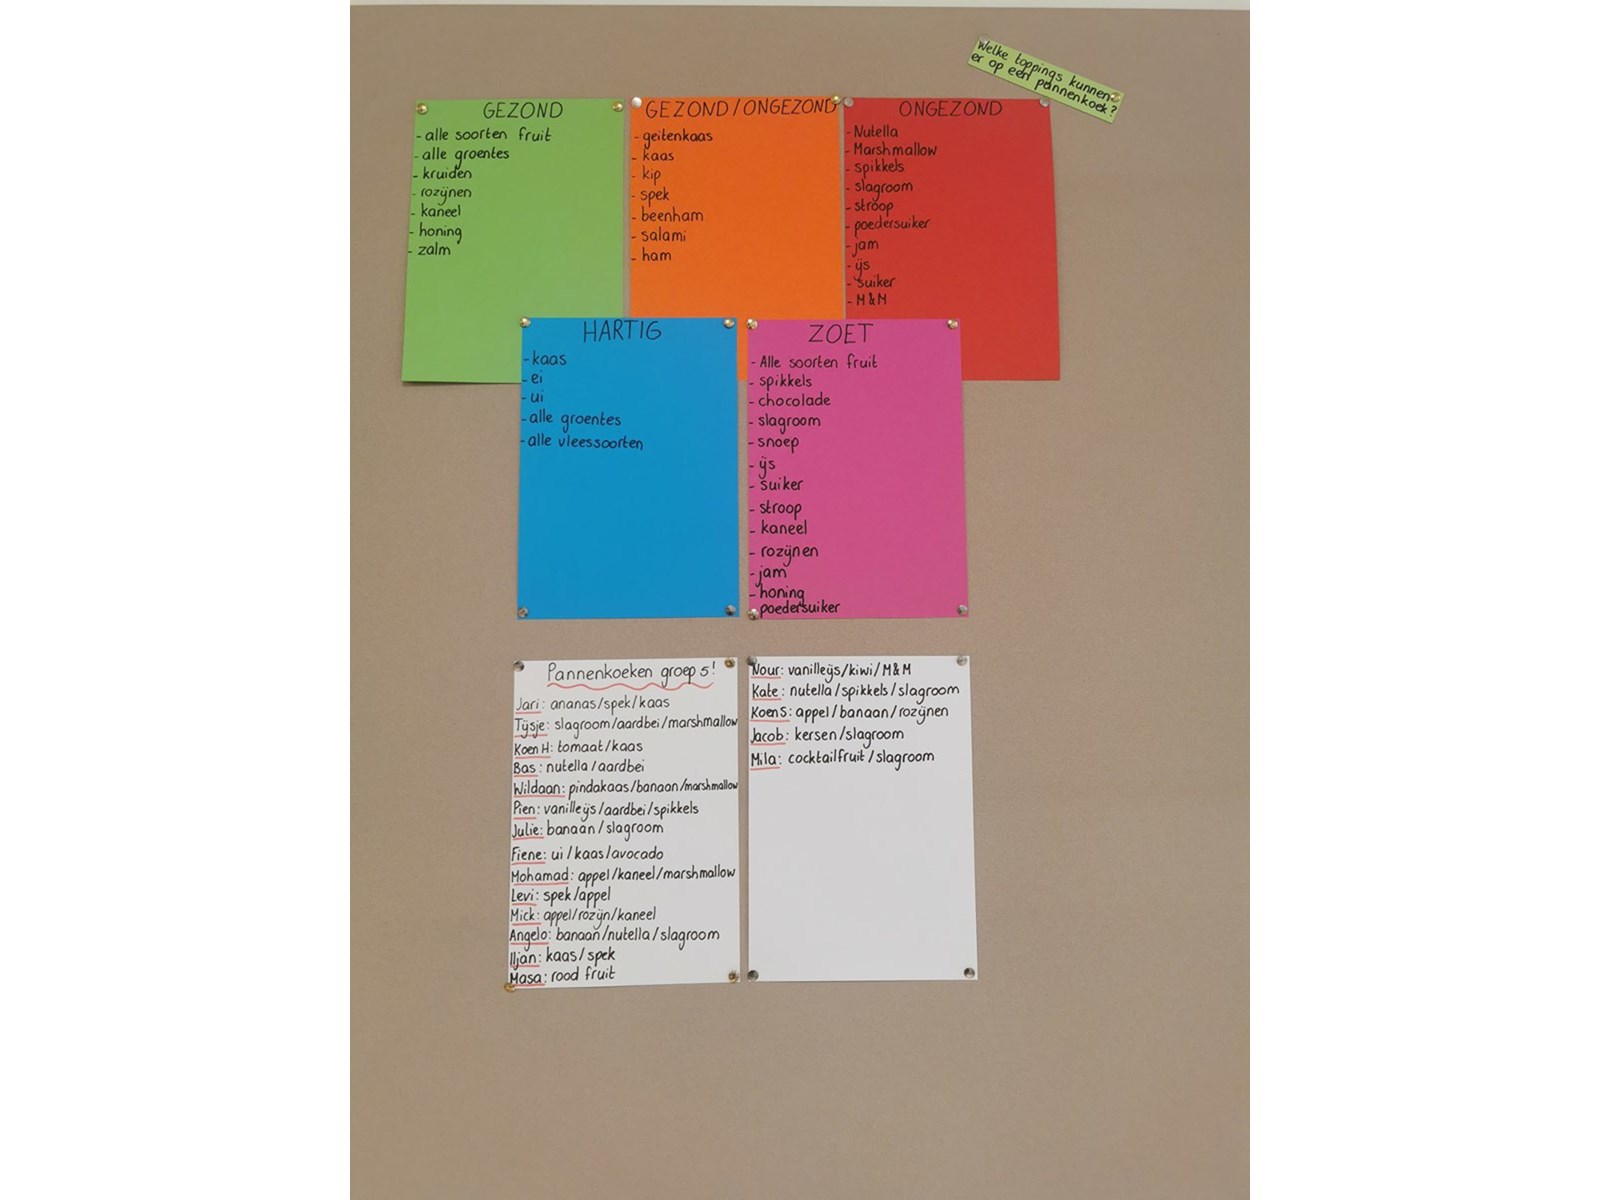 Welke toppings kunnen
er op een pannenkoek?
GEZOND
- alle soorten fruit
- alle groentes
- kruiden
- rozijnen
- kaneel
- honing
- zalm
GEZOND/ONGEZOND
- geitenkaas
- kaas
- kip
- spek
- beenham
- salami
- ham
ONGEZOND
- Nutella
- Marshmallow
- spikkels
- slagroom
- stroop
- poedersuiker
- jam
- ijs
- suiker
- M&M
HARTIG
- kaas
- ei
- ui
- alle groentes
- alle vleessoorten
ZOET
- Alle soorten fruit
- spikkels
- chocolade
- slagroom
- snoep
- ijs
- suiker
- stroop
- kaneel
- rozijnen
- jam
- honing
poedersuiker
Pannenkoeken groep 5!
Jari: ananas/spek/kaas
Tijsje: slagroom/aardbei/marshmallow
Koen H: tomaat/kaas
Bas: nutella/aardbei
Wildaan: pindakaas/banaan/marshmallow
Pien: vanilleijs/aardbei/spikkels
Julie: banaan/slagroom
Fiene: ui/kaas/avocado
Mohamad: appel/kaneel/marshmallow
Levi: spek/appel
Mick: appel/rozijn/kaneel
Angelo: banaan/nutella/slagroom
Iljan: kaas/spek
Masa: rood fruit
Nour: vanilleijs/kiwi/M&M
Kate: nutella/spikkels/slagroom
Koen S: appel/banaan/rozijnen
Jacob: kersen/slagroom
Mila: cocktailfruit/slagroom